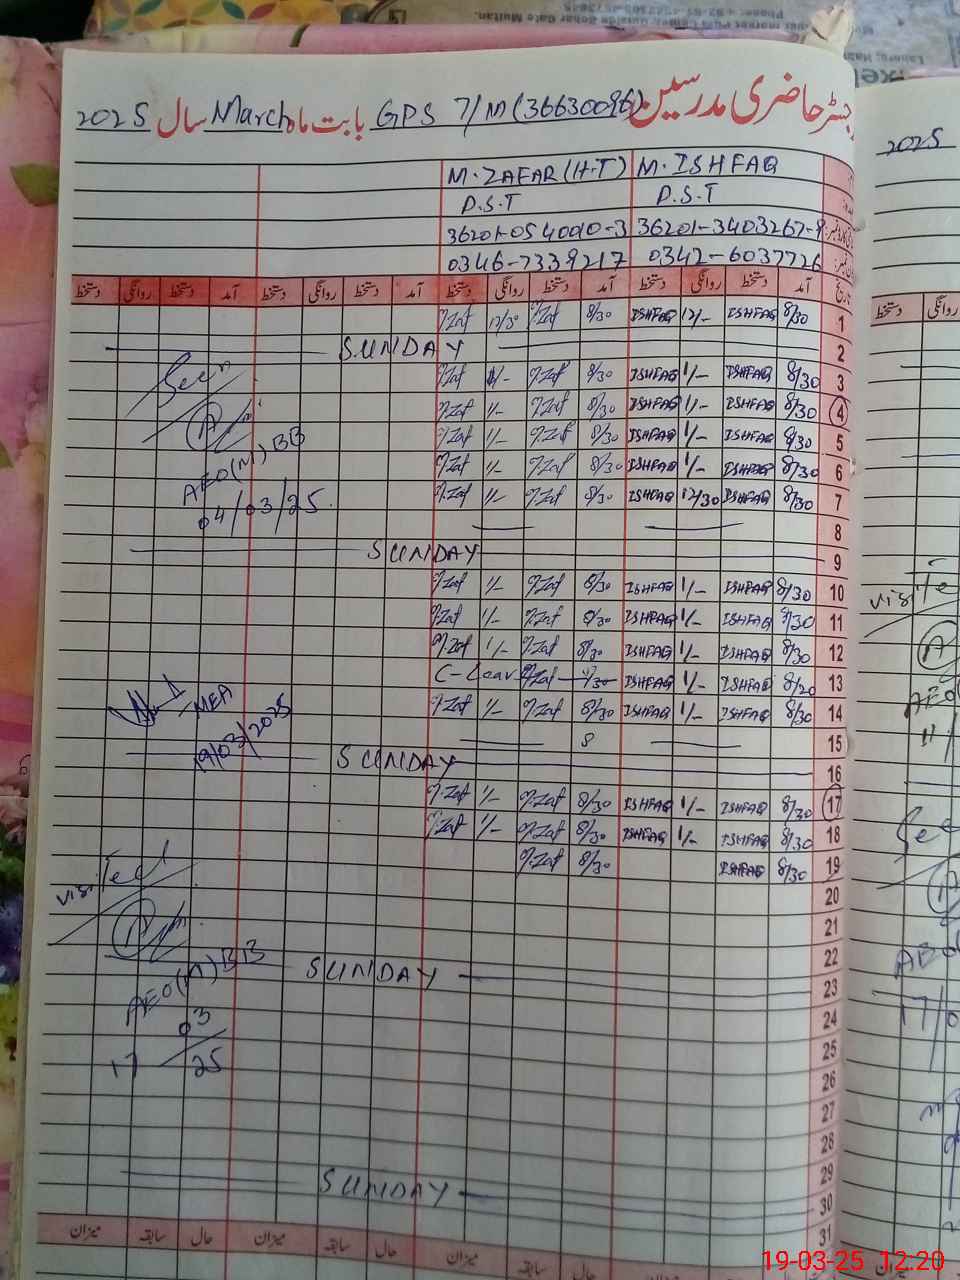 رجسٹر حاضری مدرسین GPS 7/M (36630096) بابت ماہ March سال 2025
M. ISHFAQ M. ZAFAR (H.T)
P.S.T P.S.T
36201-0540010-3
0342-6037726 0346-7339217
تاریخ آمد دستخط روانگی دستخط آمد دستخط روانگی دستخط آمد دستخط روانگی دستخط آمد دستخط روانگی دستخط
1 8/30 ISHFAQ 12/- ISHFAQ 8/30 M.Zaf 12/30 M.Zaf
2 SUNDAY
3 8/30 ISHFAQ 1/- ISHFAQ 8/30 M.Zaf 1/- M.Zaf
4 8/30 ISHFAQ 1/- ISHFAQ 8/30 M.Zaf 1/- M.Zaf
5 8/30 ISHFAQ 1/- ISHFAQ 8/30 M.Zaf 1/- M.Zaf
6 8/30 ISHFAQ 1/- ISHFAQ 8/30 M.Zaf 1/- M.Zaf
7 8/30 ISHFAQ 12/30 ISHFAQ 8/30 M.Zaf 1/- M.Zaf
8
9 SUNDAY
10 8/30 ISHFAQ 1/- ISHFAQ 8/30 M.Zaf 1/- M.Zaf
11 8/30 ISHFAQ 1/- ISHFAQ 8/30 M.Zaf 1/- M.Zaf
12 8/30 ISHFAQ 1/- ISHFAQ 8/30 M.Zaf 1/- M.Zaf
13 8/20 ISHFAQ 1/- ISHFAQ M.Zaf C-Leave
14 8/30 ISHFAQ 1/- ISHFAQ 8/30 M.Zaf 1/- M.Zaf
15 8
16 SUNDAY
17 8/30 ISHFAQ 1/- ISHFAQ 8/30 M.Zaf 1/- M.Zaf
18 8/30 ISHFAQ 1/- ISHFAQ 8/30 M.Zaf 1/- M.Zaf
19 8/30 ISHFAQ 8/30 M.Zaf
20
21
22
23 SUNDAY
24
25
26
27
28
29
30 SUNDAY
31
حال سابقہ میزان حال سابقہ میزان حال سابقہ میزان
Seen
AEO(M) BB
04/03/25
MEA
19/03/2025
visited
AEO(M) BB
17/03/25
2025
دستخط روانگی
visite
AEO
11/
See
AEO
17/0
میزان
19-03-25 12.20